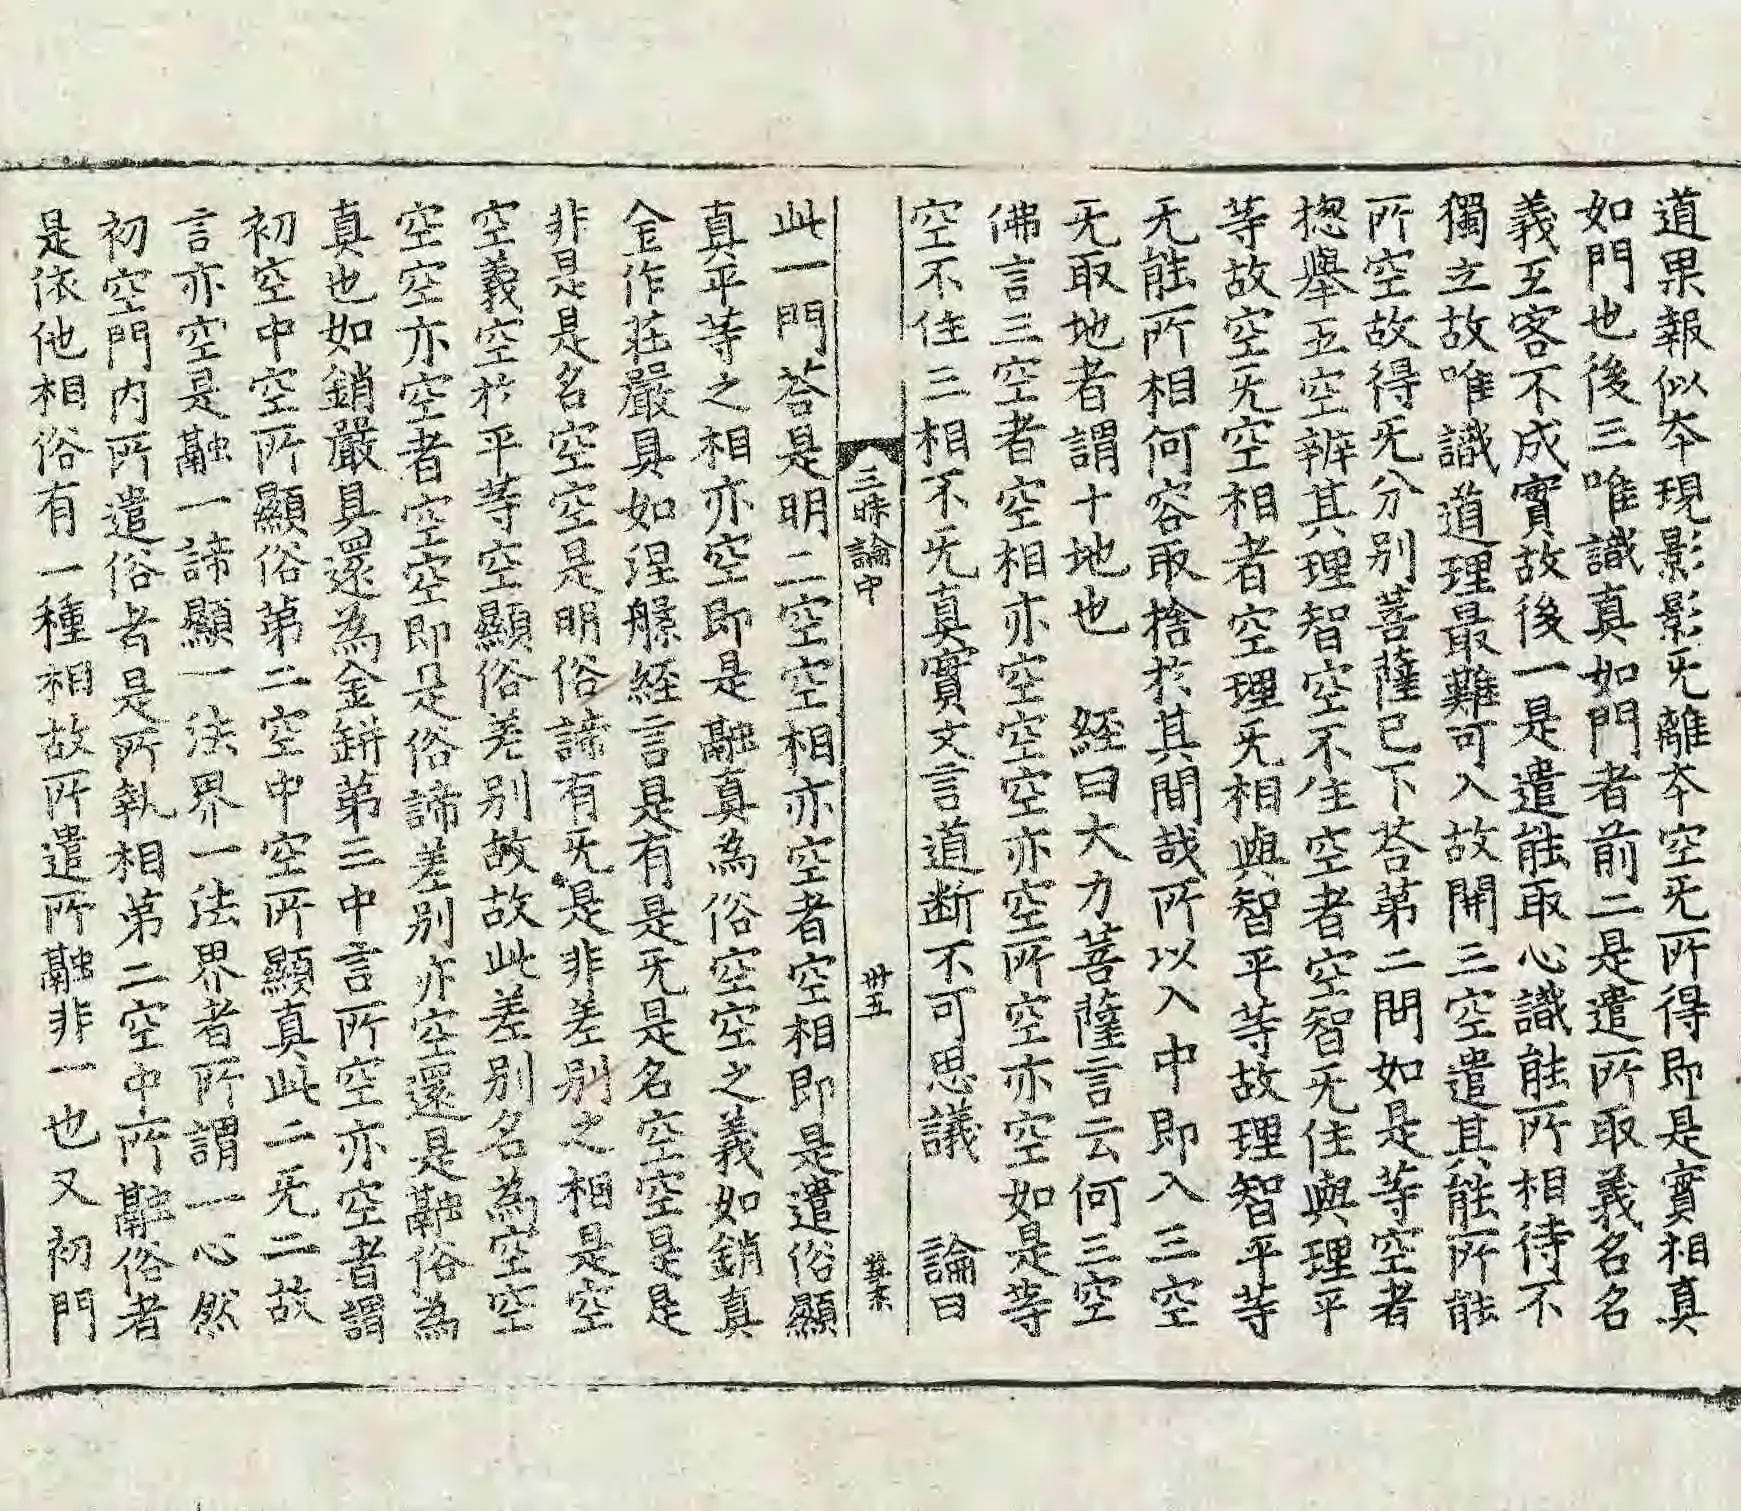 道果報似本現影影无離本空无所得即是實相真
如門也後三唯識真如門者前二是遣所取義名名
義互客不成實故後一是遣能取心識能所相待不
獨立故唯識道理最難可入故開三空遣其能所能
所空故得无分別菩薩已下荅第二問如是等空者
揔舉五空辨其理智空不住空者空智无住與理平
等故空无空相者空理无相與智平等故理智平等
无能所相何容取捨於其間哉所以入中即入三空
无取地者謂十地也 經曰大力菩薩言云何三空
佛言三空者空相亦空空空亦空所空亦空如是等
空不住三相不无真實文言道断不可思議 論曰
三昧論中 卅五
此一門荅是明二空空相亦空者空相即是遣俗顯
真平等之相亦空即是融真為俗空空之義如銷真
金作莊嚴具如涅槃經言是有是无是名空空是是
非是是名空空是明俗諦有无是非差別之相是空
空義空於平等空顯俗差別故故此差別名為空空
空空亦空者空空即是俗諦差別亦空還是融俗為
真也如銷嚴具還為金鉼第三中言所空亦空者謂
初空中空所顯俗第二空中空所顯真此二无二故
言亦空是融一諦顯一法界一法界者所謂一心然
初空門内所遣俗者是所執相第二空中所融俗者
是依他相俗有一種相故所遣所融非一也又初門